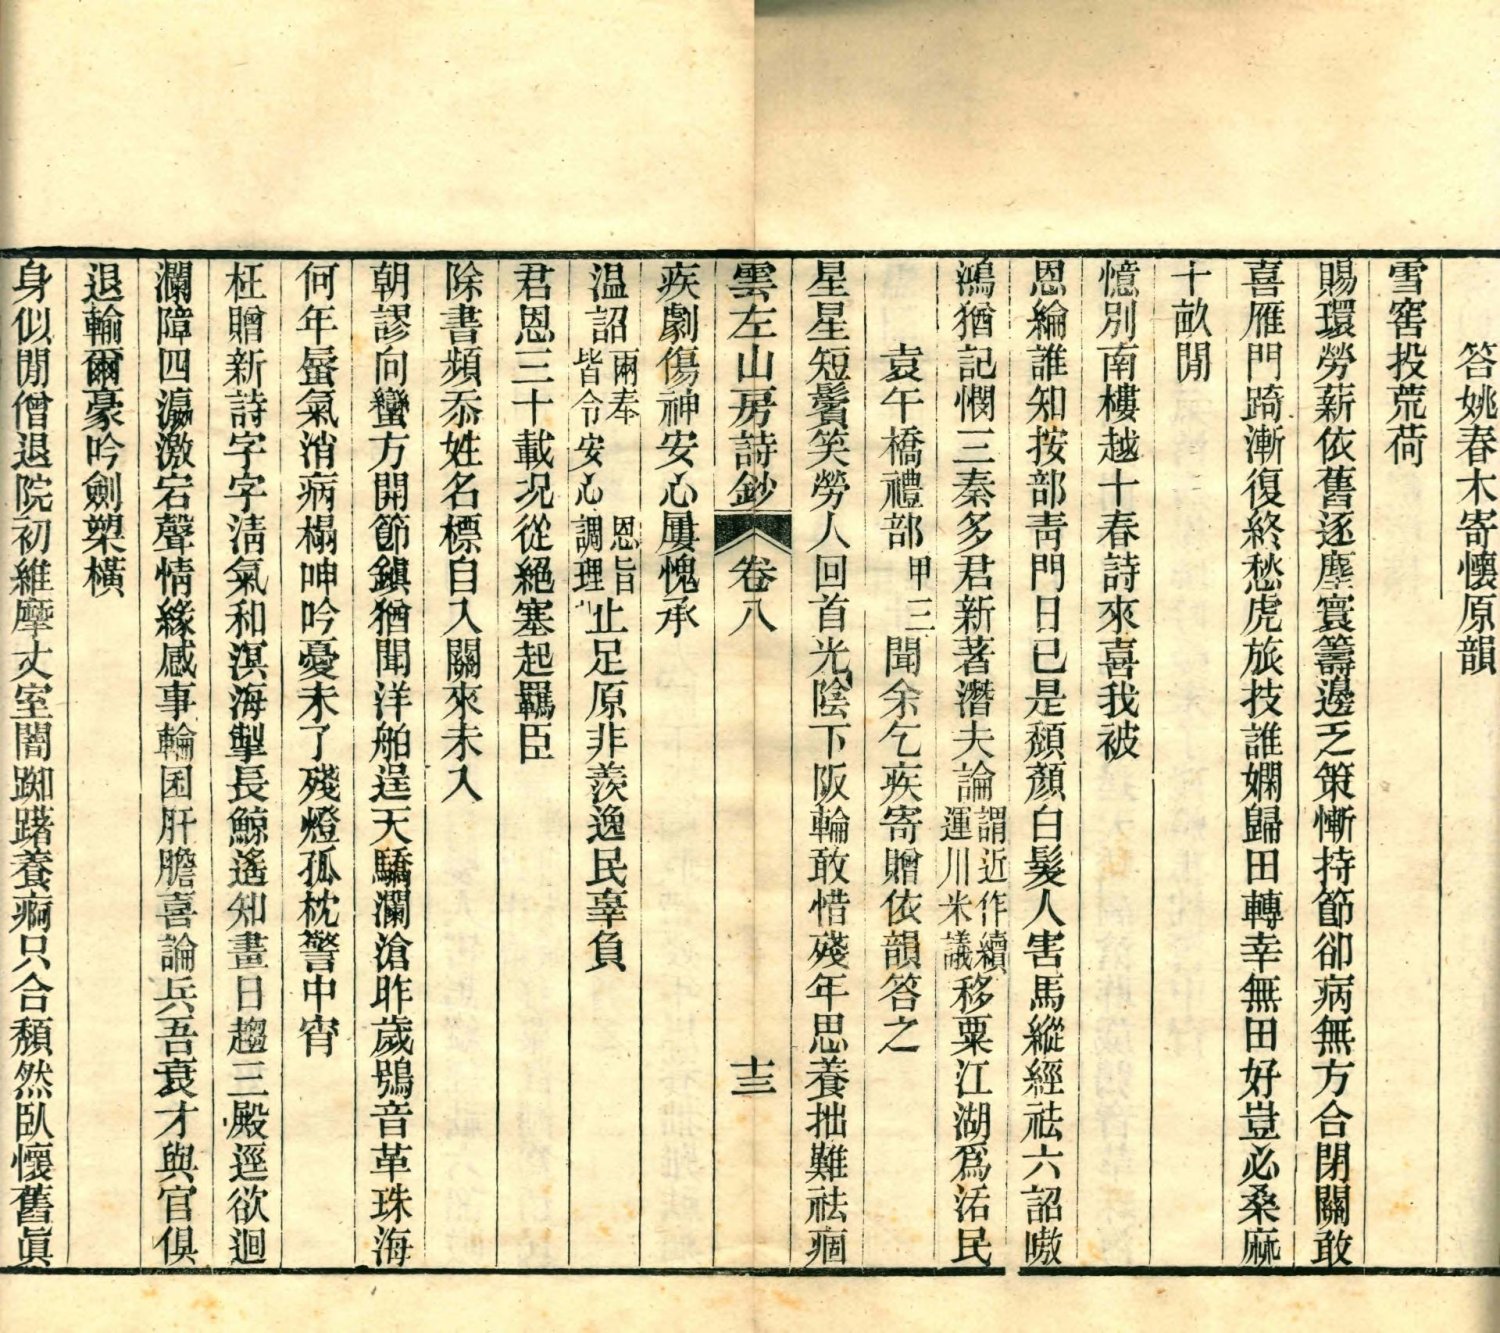 答姚春木寄懷原韻
雪窖投荒荷
賜環勞薪依舊逐塵寰籌邊乏策慚持節卻病無方合閉關敢
喜雁門踦漸復終愁虎旅技誰嫻歸田轉幸無田好豈必桑麻
十畝閒
憶別南樓越十春詩來喜我被
恩綸誰知按部青門日已是頹顏白髮人害馬縱經祛六詔嗷
鴻猶記憫三秦多君新著潛夫論謂近作續運川米議移粟江湖爲活民
袁午橋禮部甲三聞余乞疾寄贈依韻答之
星星短鬢笑勞人回首光陰下阪輪敢惜殘年思養拙難祛痼
雲左山房詩鈔 卷八 十三
疾劇傷神安心屢愧承
温詔兩奉恩旨皆令安心調理止足原非羨逸民辜負
君恩三十載況從絕塞起羈臣
除書頻忝姓名標自入關來未入
朝謬向蠻方開節鎮猶聞洋舶逞天驕瀾滄昨歲鴞音革珠海
何年蜃氣消病榻呻吟憂未了殘燈孤枕警中宵
枉贈新詩字字淸氣和溟海掣長鯨遙知晝日趨三殿逕欲迴
瀾障四瀛激宕聲情緣感事輪囷肝膽喜論兵吾衰才與官俱
退輸爾豪吟劍槊橫
身似閒僧退院初維摩丈室闇踟躇養疴只合頹然臥懷舊眞